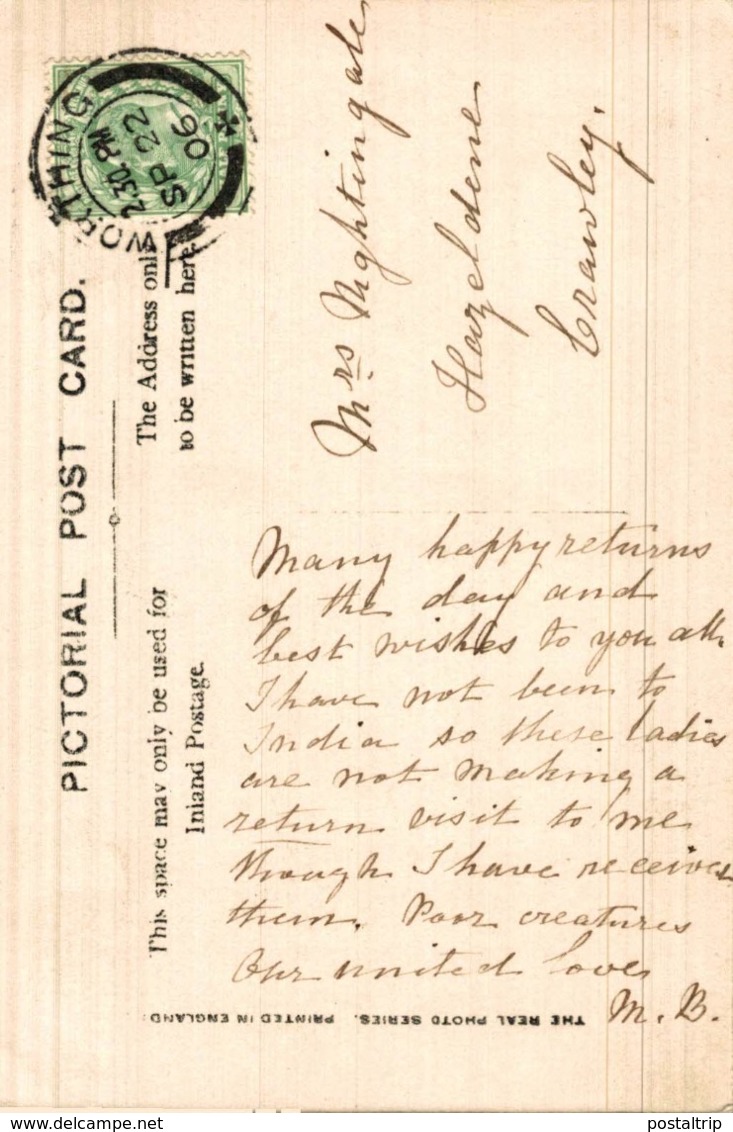 PICTORIAL POST CARD.
This space may only be used for
Inland Postage.
The Address only
to be written here.
WORTHING
2.30.PM
SP 22
06
Mrs Nightingale
Hazeldene
Crawley.
Many happy returns
of the day and
best wishes to you all.
I have not been to
India so these ladies
are not making a
return visit to me
though I have received
them. Poor creatures
Our united love
M. B.
THE REAL PHOTO SERIES. PRINTED IN ENGLAND.
delcampe.net
postaltrip